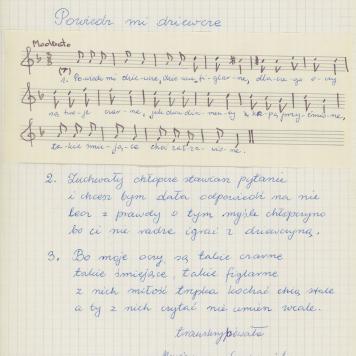 Powiedz mi dziewczę
Moderato
1. Powiedz mi dziewczę, dziewczę figlarne, dlaczego oczy
są twoje czarne, jak dwa diamenty
takie śmiejące
2. Zuchwały chłopcze stawiasz pytanie
i chcesz bym dała odpowiedź na nie
lecz z prawdy o tym myślę chłopczyno
bo ci nie radzę igrać z dziewczyną.
3. Bo moje oczy są takie czarne
takie śmiejące, takie figlarne
z nich miłość tryska kochać chcą stale
a ty z nich czytać nie umiesz wcale.
transkrybowała